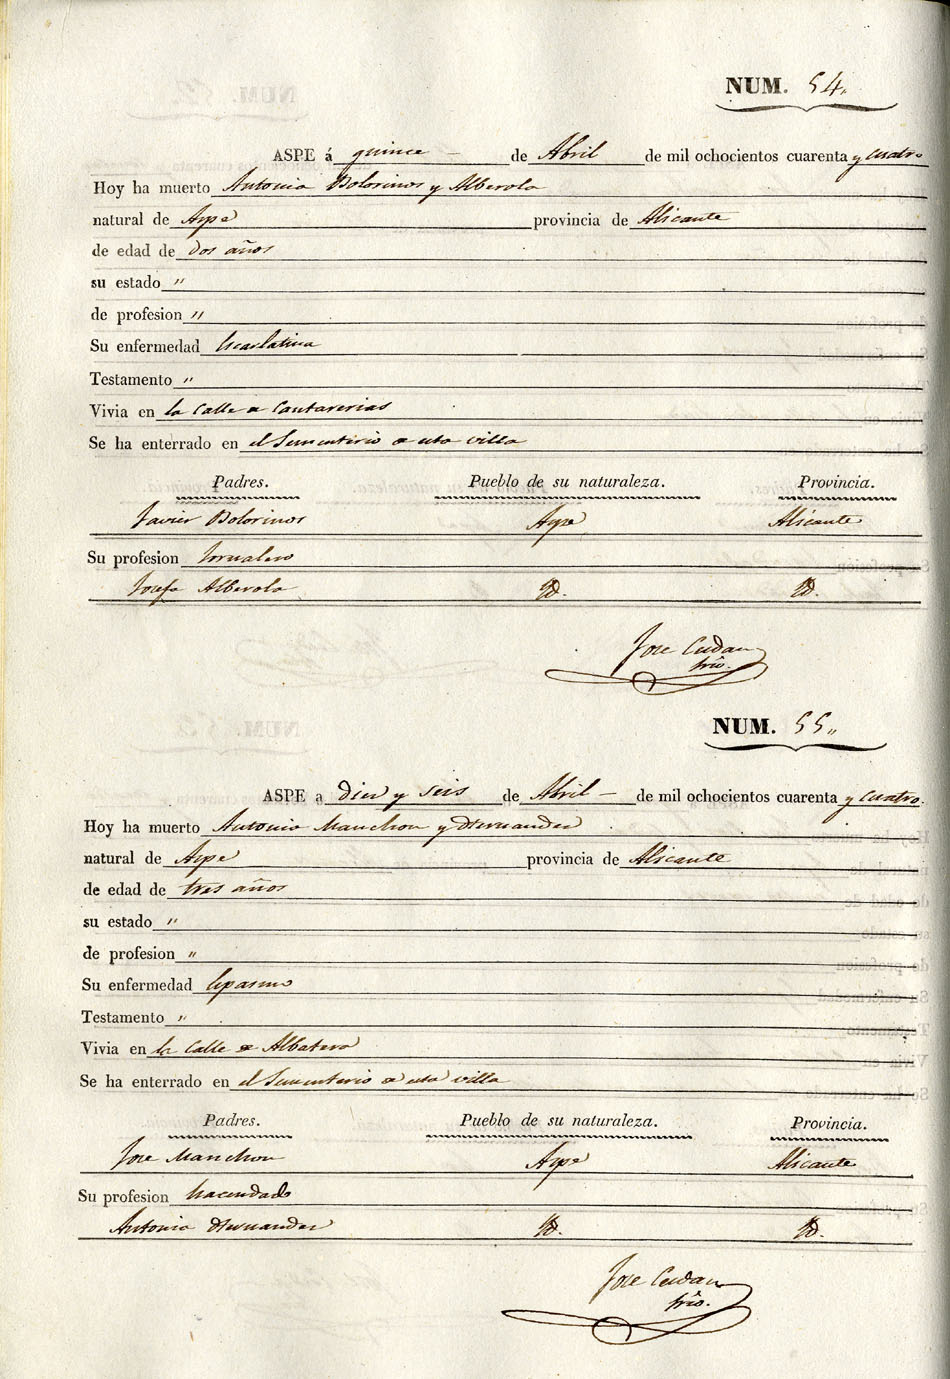 NUM. 54.
ASPE á quince de Abril de mil ochocientos cuarenta y cuatro
Hoy ha muerto Antonia Bolorinos y Alberola
natural de Aspe provincia de Alicante
de edad de dos años
su estado "
de profesion "
Su enfermedad Escarlatina
Testamento "
Vivia en la Calle de Cantarerias
Se ha enterrado en el Sementirio de esta villa
Padres. Pueblo de su naturaleza. Provincia.
Javier Bolorinos Aspe Alicante
Su profesion Jornalero
Josefa Alberola Id. Id.
Jose
Srio.
NUM. 55.
ASPE a diez y seis de Abril de mil ochocientos cuarenta y cuatro.
Hoy ha muerto Antonio Manchon y Hernandez
natural de Aspe provincia de Alicante
de edad de tres años
su estado "
de profesion "
Su enfermedad Espasmo
Testamento "
Vivia en la Calle de Albatera
Se ha enterrado en el Sementerio de esta villa
Padres. Pueblo de su naturaleza. Provincia.
Jose Manchon Aspe Alicante
Su profesion hacendado
Antonia Hernandez Id. Id.
Jose
Srio.